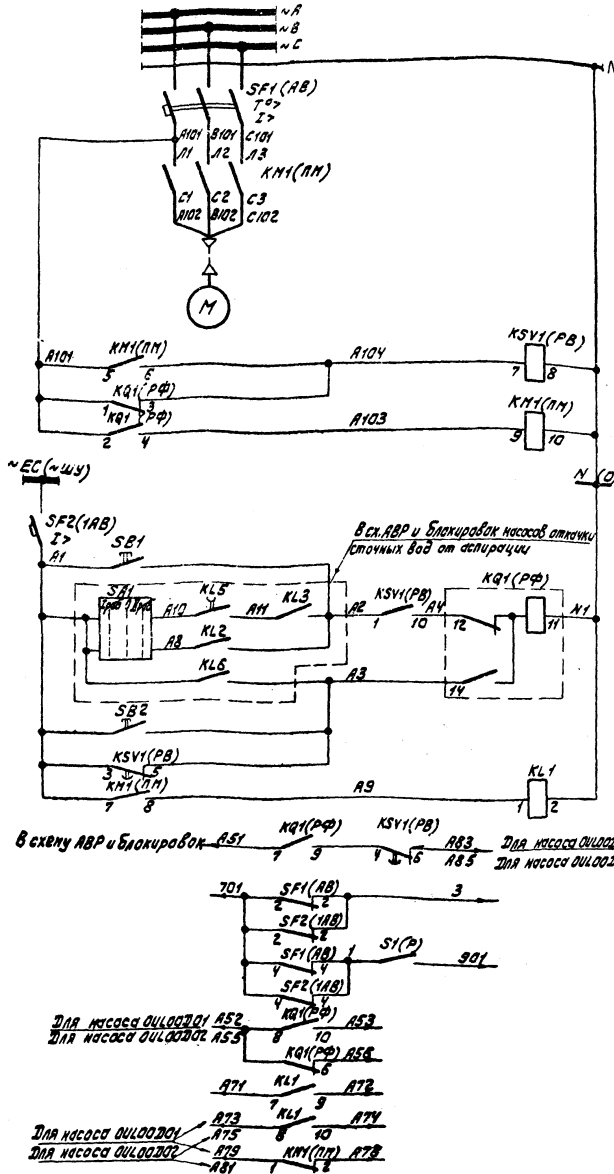 ~A
~B
~C
N
SF1(АВ)
T°>
I>
A101 B101 C101
Л1 Л2 Л3
KM1(ПМ)
C1 C2 C3
A102 B102 C102
M
A101 KM1(ПМ) A104 KSV1(РВ)
5 6 7 8
KQ1(РФ) KM1(ПМ)
1 3
KQ1(РФ) A103
2 4 9 10
~EC(~ШУ) N(О
SF2(1АВ)
I>
A1 SB1
В сх. АВР и блокировок насосов откачки
сточных вод от аспирации
SA1 KL5 KL3 KSV1(РВ) KQ1(РФ)
A10 A11 A2 A4 N1
1 10 12 11
A8 KL2
KL6 A3
14
SB2
KSV1(РВ)
3 5
KM1(ПМ) A9 KL1
7 8 1 2
В схему АВР и блокировок A51 KQ1(РФ) KSV1(РВ) A83 Для насоса 0UL00D
7 9 4 6 A85 Для насоса 0UL00D
701 SF1(АВ) 3
2 2
SF2(1АВ)
2 2
SF1(АВ) 1 S1(Р)
4 4 901
SF2(1АВ)
4 4
Для насоса 0UL00D01 A52 KQ1(РФ) A53
Для насоса 0UL00D02 A55 8 10
KQ1(РФ) A56
6
A71 KL1 A72
7 9
A73 KL1 A74
Для насоса 0UL00D01 A75 8 10
Для насоса 0UL00D02 A79 KM1(ПМ) A78
A81 1 2